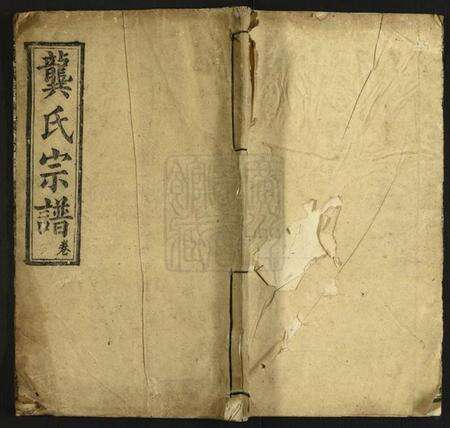 龔氏宗譜卷